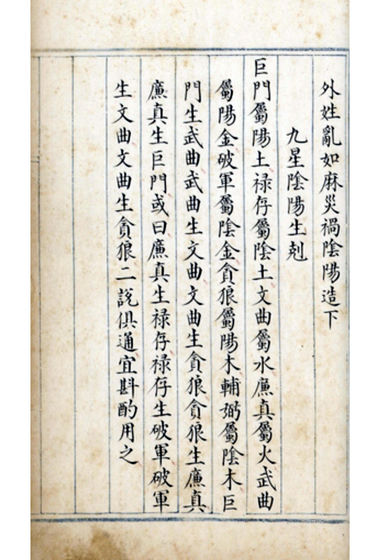 外姓亂如麻災禍陰陽造下
九星陰陽生剋
巨門屬陽土祿存屬陰土文曲屬水廉真屬火武曲
屬陽金破軍屬陰金貪狼屬陽木輔弼屬陰木巨
門生武曲武曲生文曲文曲生貪狼貪狼生廉真
廉真生巨門或曰廉真生祿存祿存生破軍破軍
生文曲文曲生貪狼二說俱通宜斟酌用之